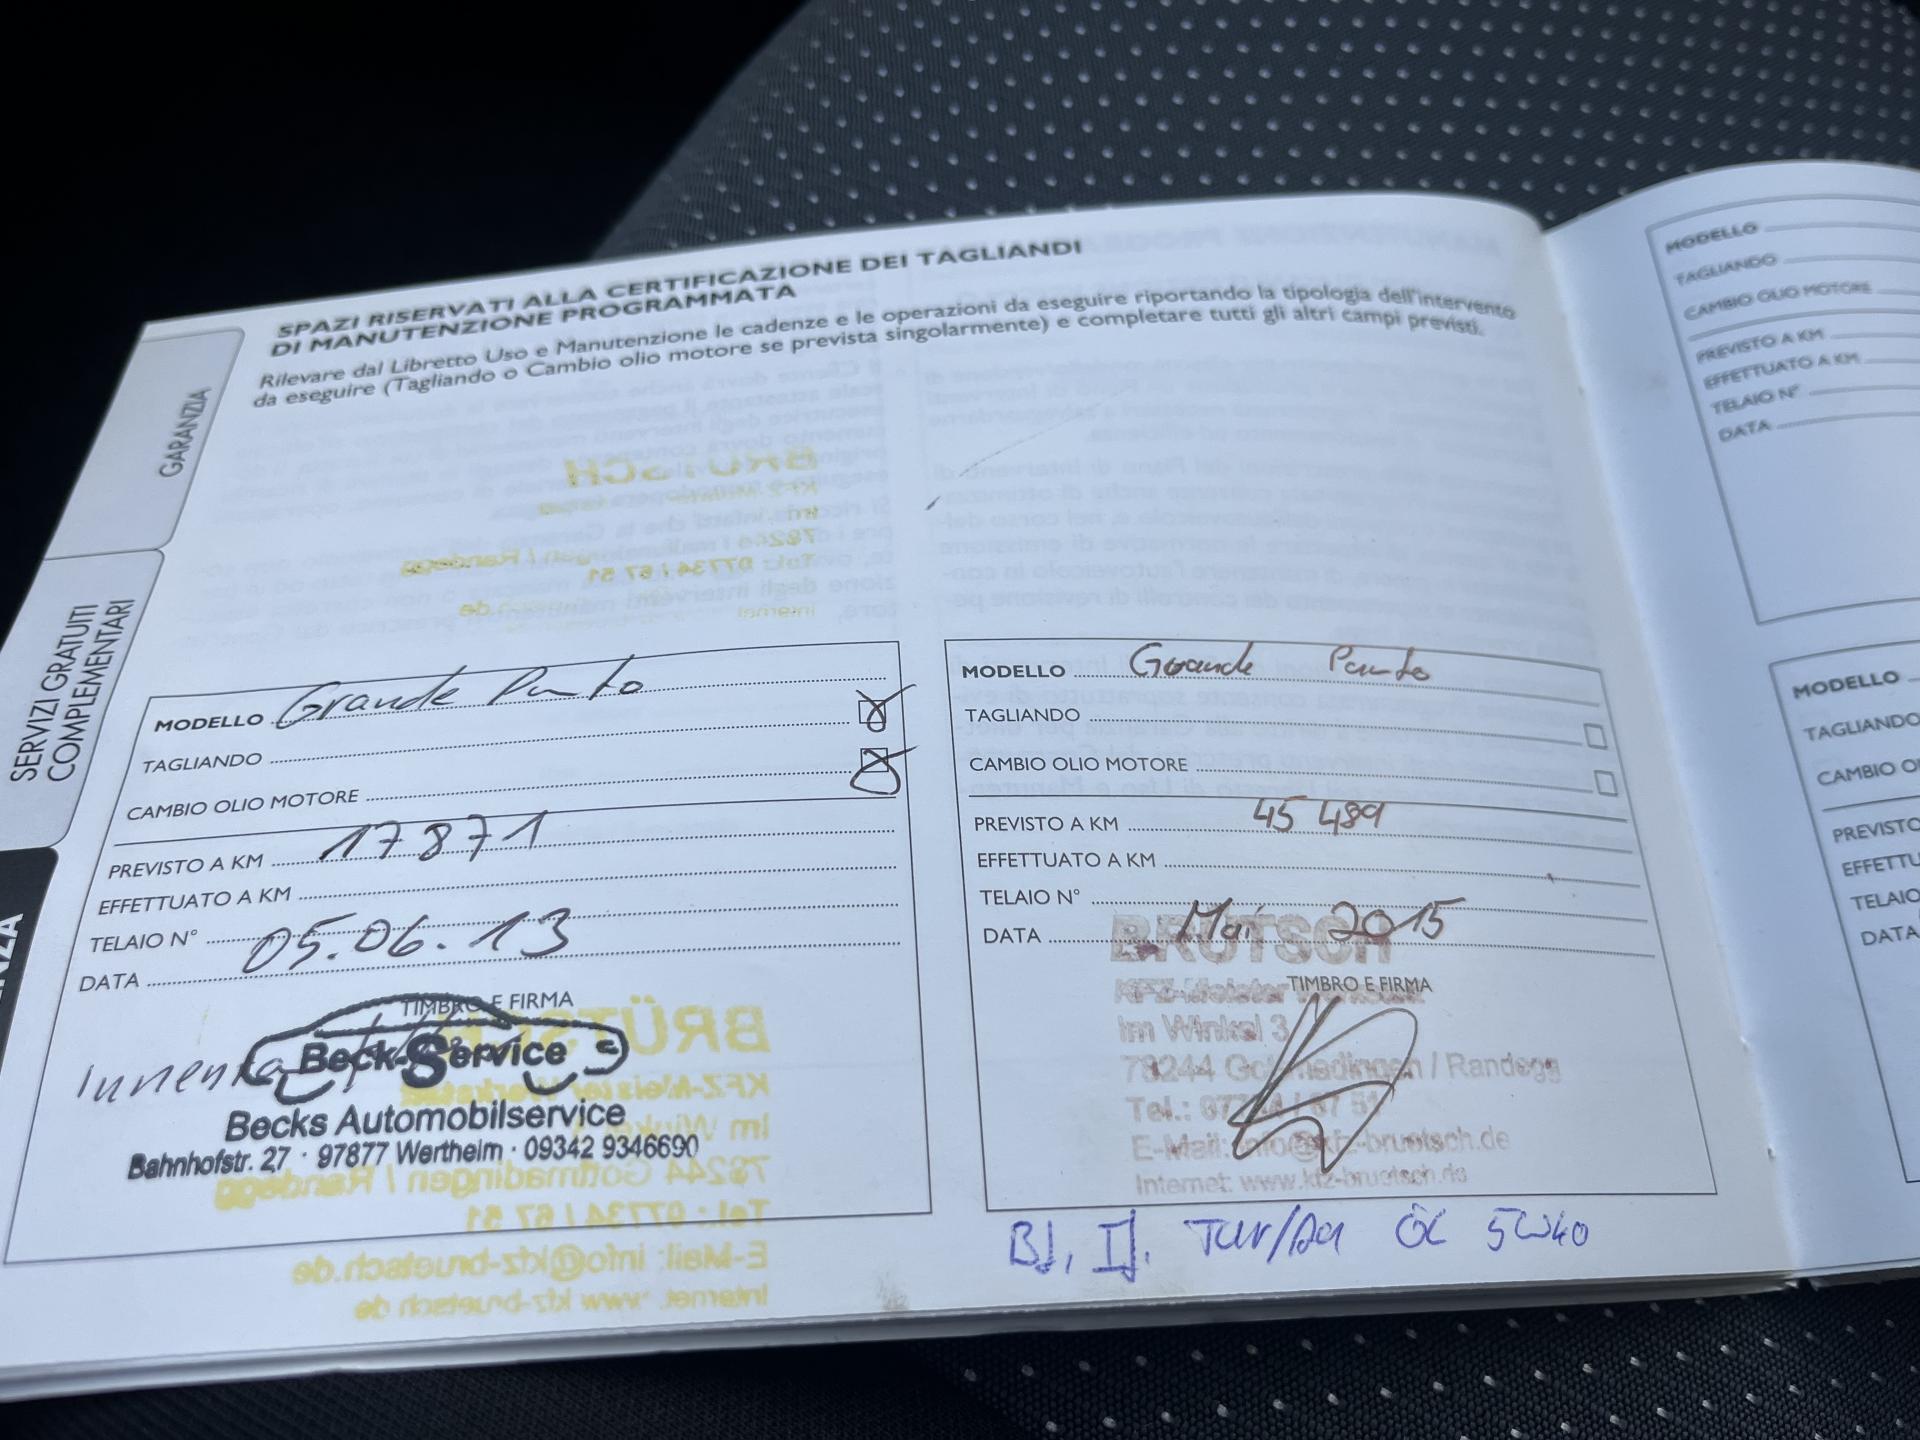 SPAZI RISERVATI ALLA CERTIFICAZIONE DEI TAGLIANDI
DI MANUTENZIONE PROGRAMMATA
Rilevare dal Libretto Uso e Manutenzione le cadenze e le operazioni da eseguire riportando la tipologia dell'intervento
da eseguire (Tagliando o Cambio olio motore se prevista singolarmente) e completare tutti gli altri campi previsti.
GARANZIA
SERVIZI GRATUITI
COMPLEMENTARI
MODELLO Grande Punto
TAGLIANDO
CAMBIO OLIO MOTORE
PREVISTO A KM 17871
EFFETTUATO A KM
TELAIO N°
DATA 05.06.13
TIMBRO E FIRMA
Beck-Service
Becks Automobilservice
Bahnhofstr. 27 · 97877 Wertheim · 09342 9346690
MODELLO Grande Punto
TAGLIANDO
CAMBIO OLIO MOTORE
PREVISTO A KM 45 489
EFFETTUATO A KM
TELAIO N°
DATA Mai 2015
BRÜTSCH
TIMBRO E FIRMA
KFZ-Meister
Im Winkel 3
78244 Gottmadingen / Randegg
Tel.: 07734 / 67 51
E-Mail: info@kfz-bruetsch.de
Internet: www.kfz-bruetsch.de
5W40
MODELLO
TAGLIANDO
CAMBIO OLIO MOTORE
PREVISTO A KM
EFFETTUATO A KM
TELAIO N°
DATA
MODELLO
TAGLIANDO
CAMBIO
PREVISTO
TELAIO
DATA